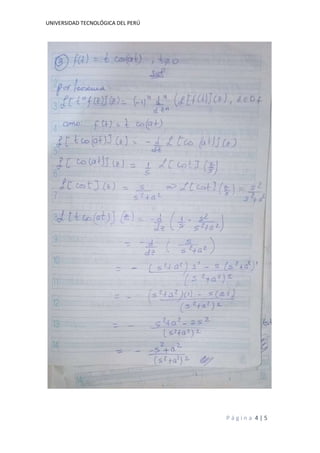 UNIVERSIDAD TECNOLÓGICA DEL PERÚ
③ f(t) = t cos(at), t≠0
Sol
por teorema:
L[tⁿ f(t)](z) = (-1)ⁿ dⁿ/dzⁿ (L[f(t)](z),
como: f(t) = t cos(at)
L[t cos(at)](z) = - d/dz L[cos(at)](z)
L[cos(at)](z) = 1/s L[cos t](z/s)
L[cos t](z) = s/(s²+a²) ⇒ L[cos t](z/s) = s²/(s²+a²)
L[t cos(at)](z) = - d/dz (1/s · s²/(s²+a²))
= - d/dz (s/(s²+a²))
= - ((s²+a²) s' - s(s²+a²)')/(s²+a²)²
= - ((s²+a²)(1) - s(2s))/(s²+a²)²
= - (s²+a²-2s²)/(s²+a²)²
= - (-s²+a²)/(s²+a²)²
Página 4 | 5